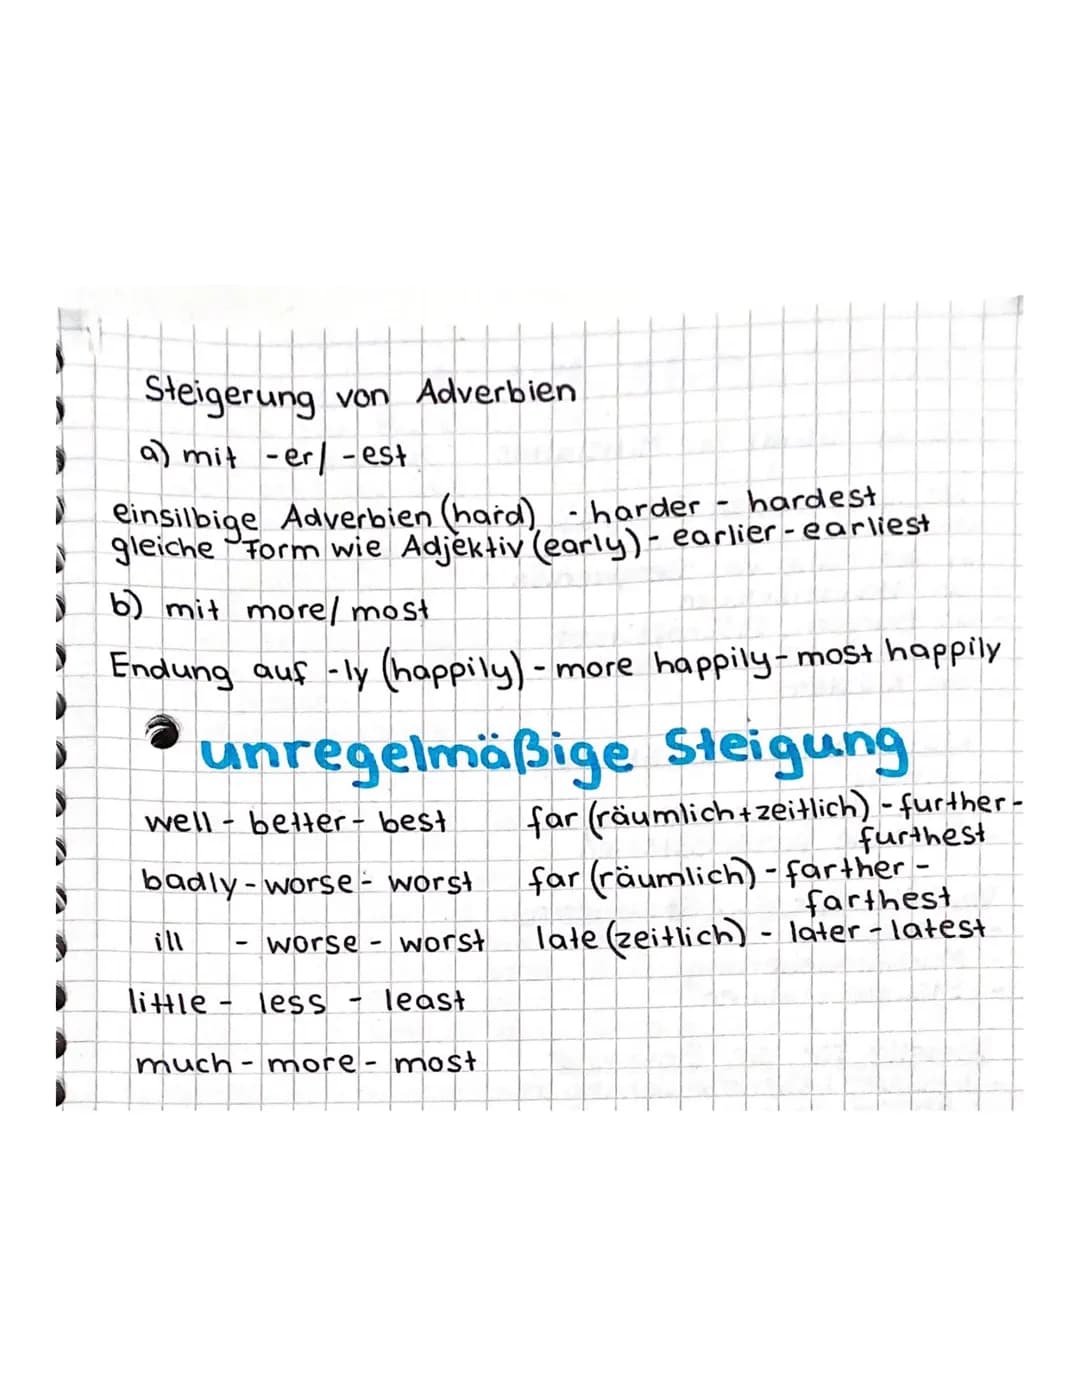 Steigerung von Adverbien
a) mit -er/ -est
einsilbige Adverbien (hard) - harder - hardest
gleiche Form wie Adjektiv (early) - earlier - earliest
b) mit more/ most
Endung auf -ly (happily) - more happily - most happily
unregelmäßige Steigung
well - better - best
badly - worse - worst
ill - worse - worst
little - less - least
much - more - most
far (räumlich + zeitlich) - further -
furthest
far (räumlich) - farther -
farthest
late (zeitlich) - later - latest